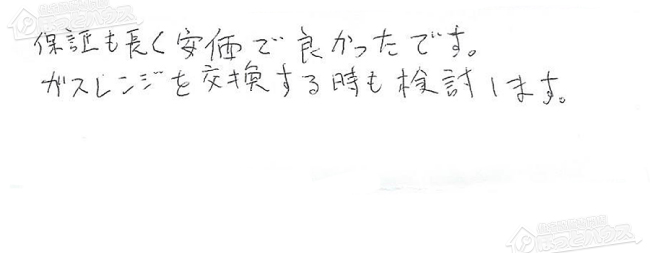 保証も長く安価で良かったです。
ガスレンジを交換する時も検討します。